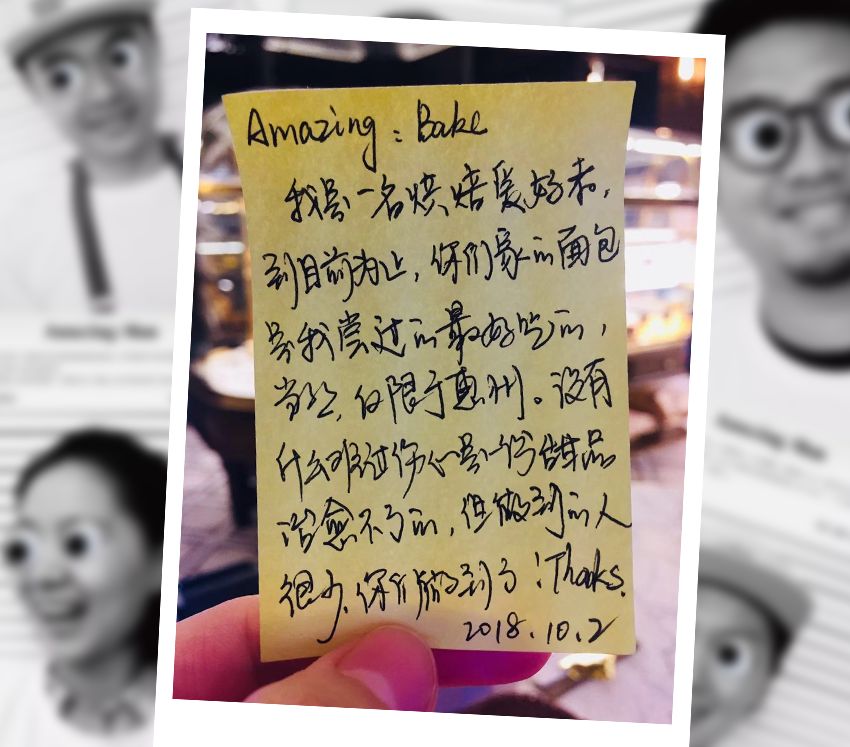 Amazing：Bake
我是一名烘焙爱好者，
到目前为止，你们家的面包
是我尝过的最好吃的，
当然，仅限于惠州。没有
什么难过伤心是一份甜品
治愈不了的，但做到的人
很少，你们做到了！Thanks.
2018.10.2